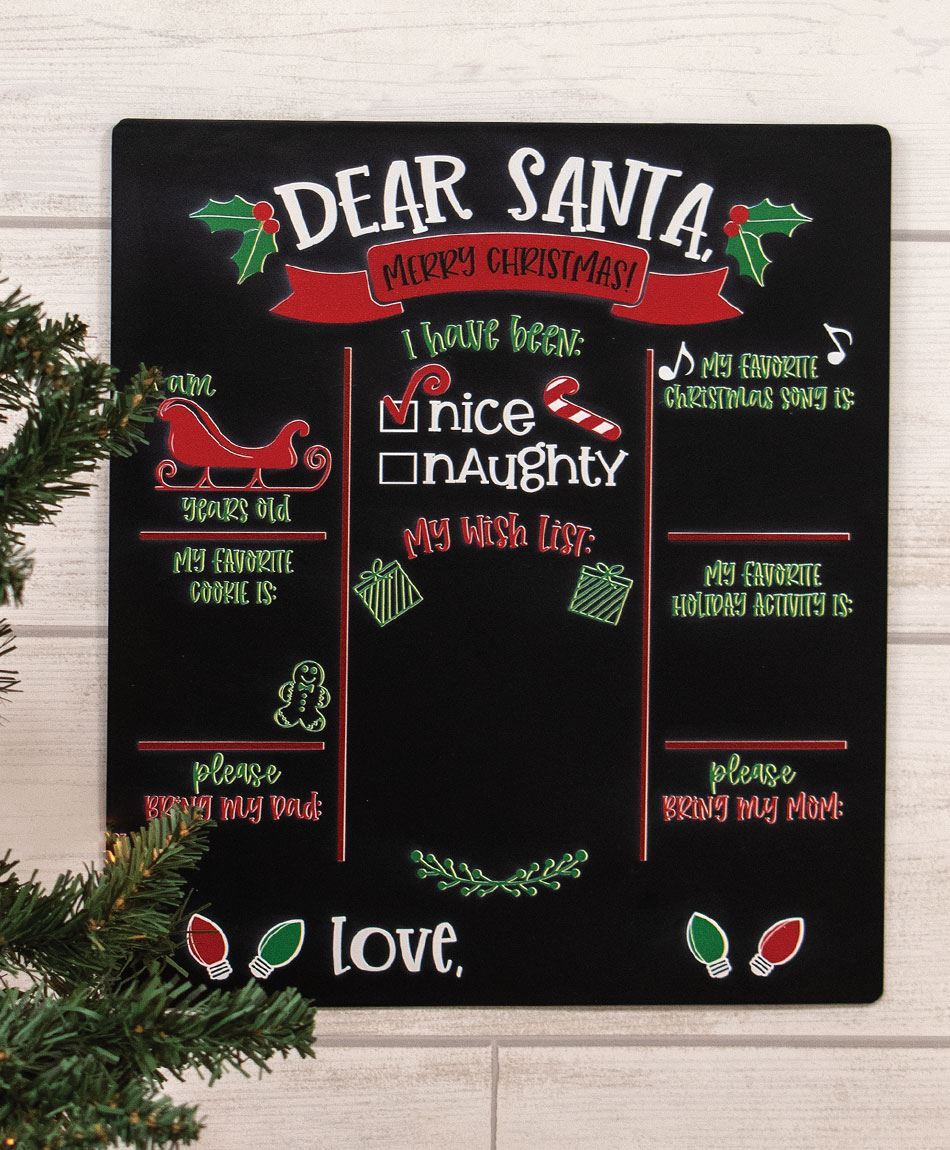 DEAR SANTA,
MERRY CHRISTMAS!
I have been:
nice
naughty
My Wish List:
I am
years old
MY FAVORITE
COOKIE IS:
please
BRING MY Dad:
MY FAVORITE
CHRISTMAS SONG IS:
MY FAVORITE
HOLIDAY ACTIVITY IS:
please
BRING MY MOM:
LOVE,